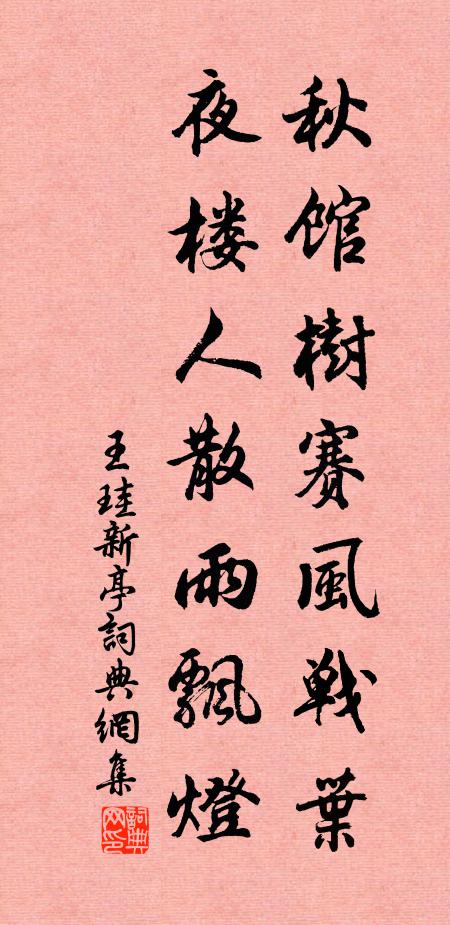 秋館樹賽風戦葉
夜楼人散雨飄燈
王珪新亭詞典網集
詞典网印